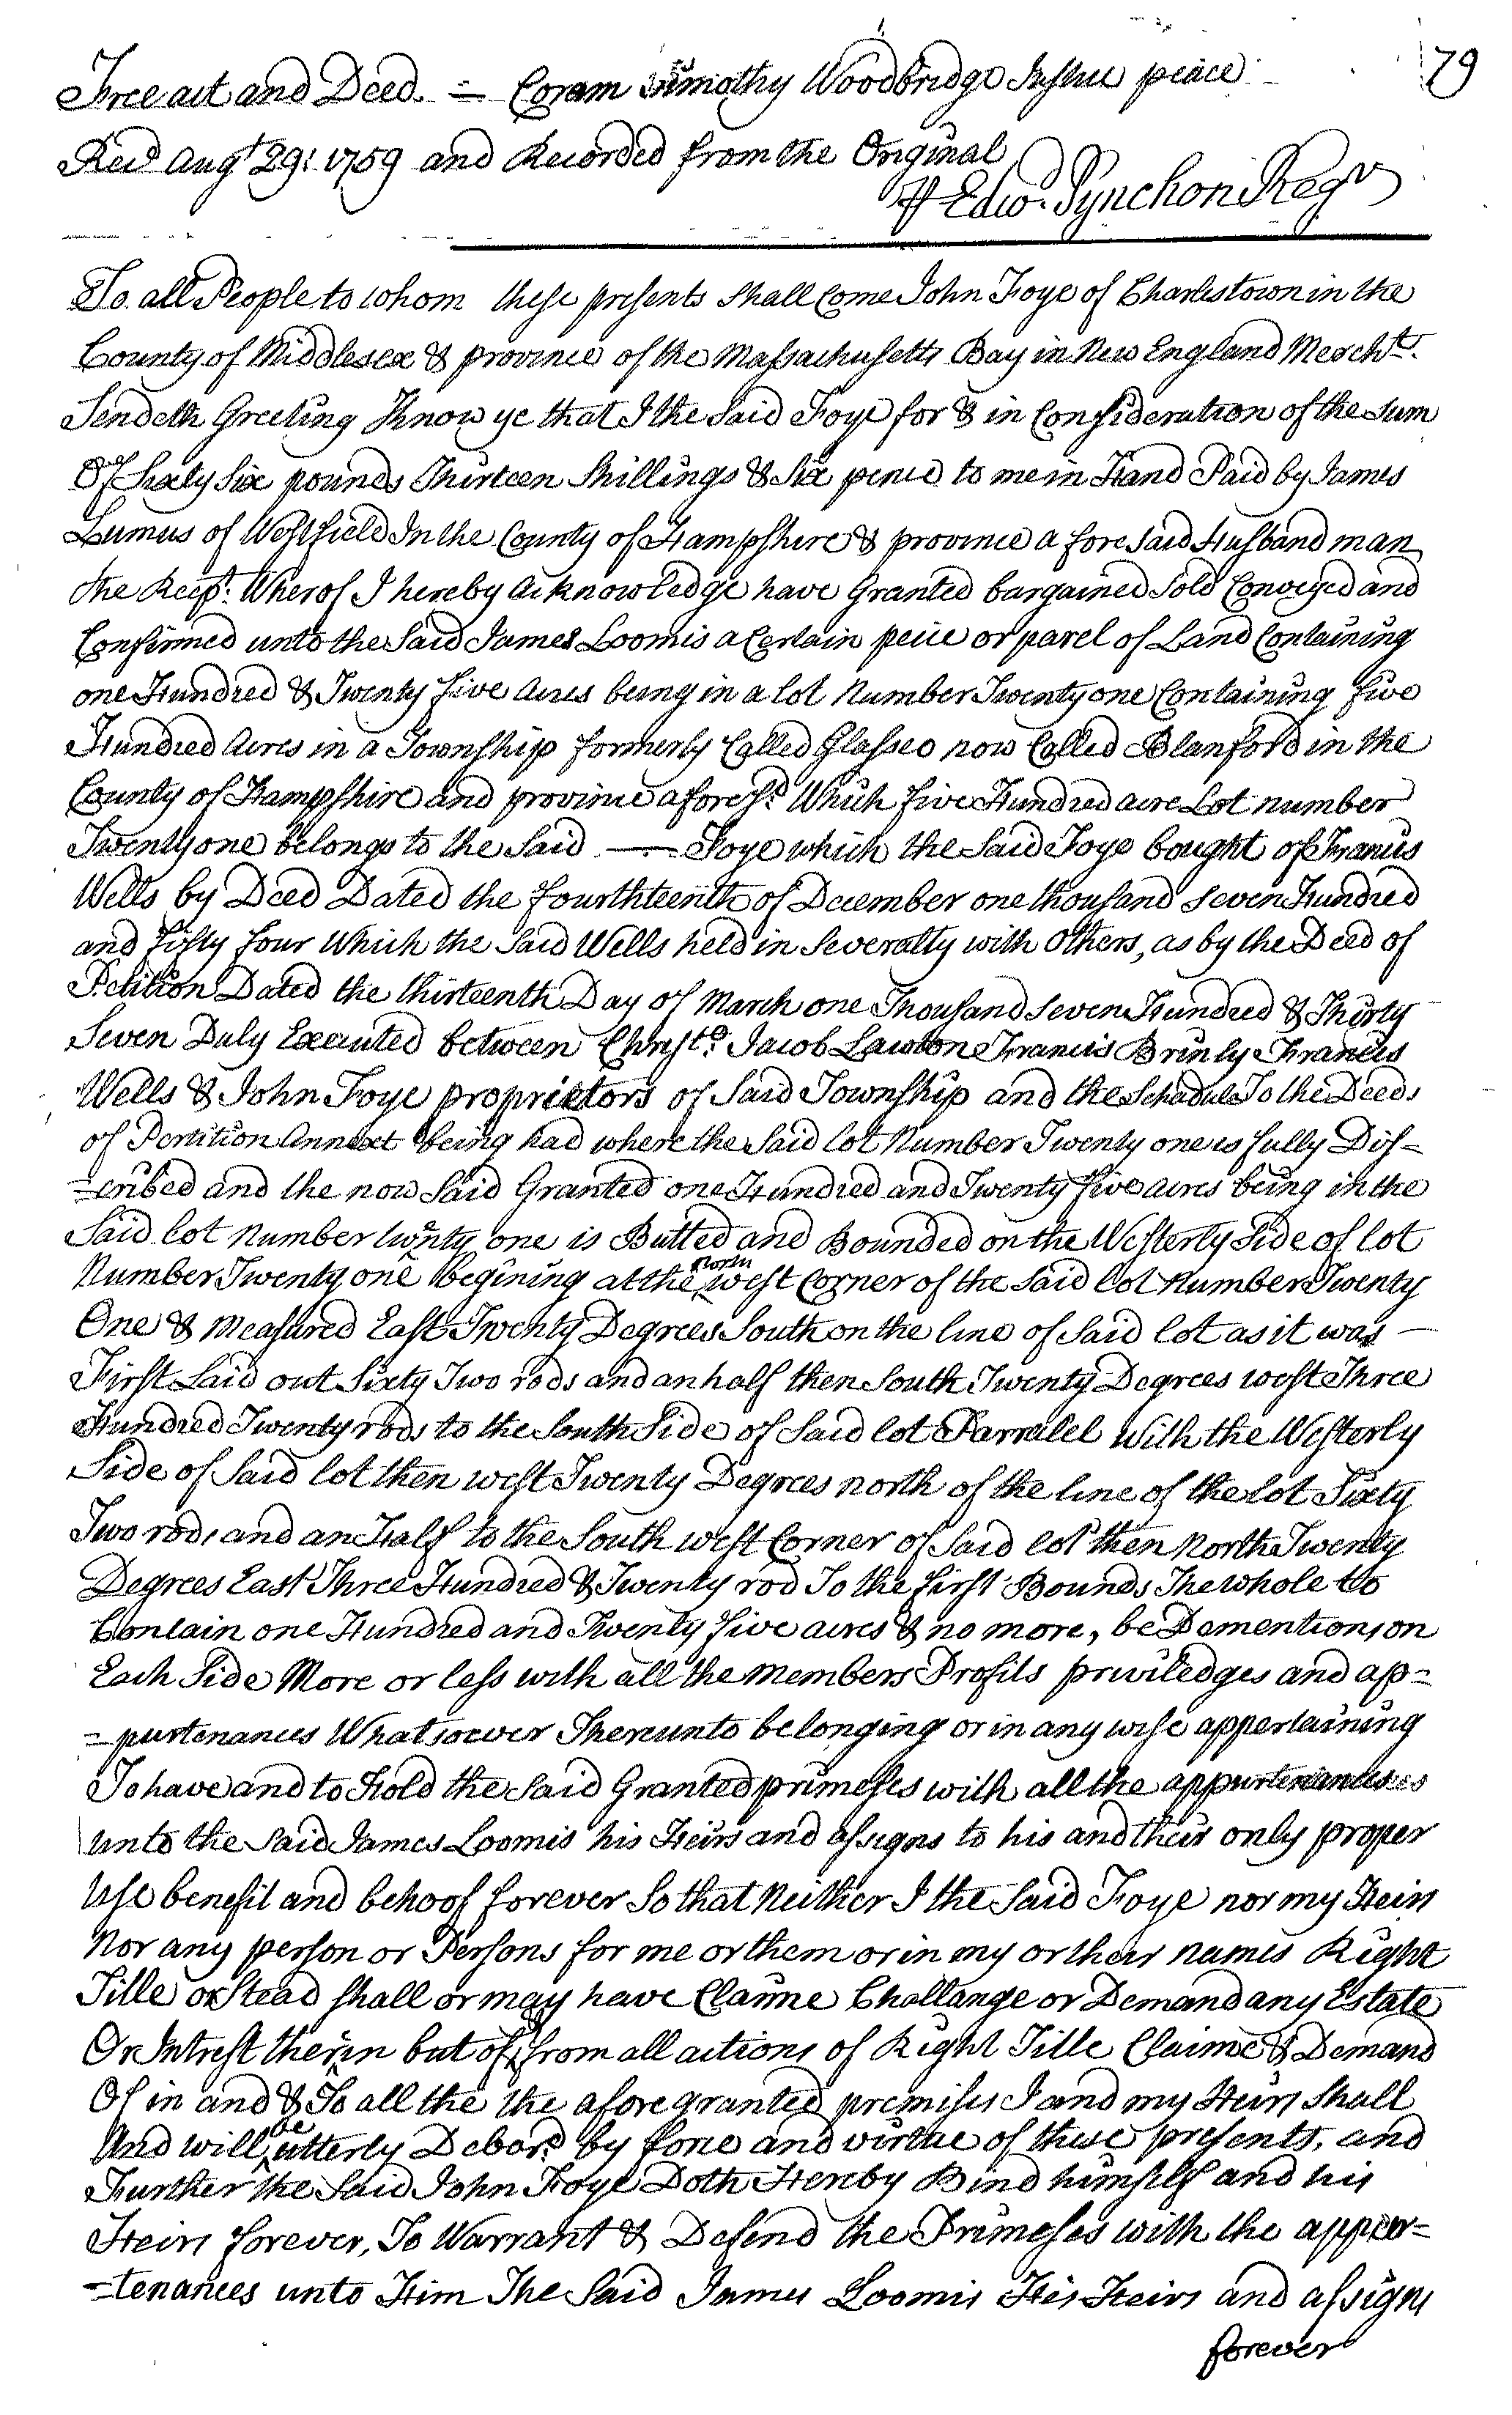 79
Free act and Deed. = Coram Timothy Woodbridge Justice peace
Recd Augt 29: 1759 and Recorded from the Original
Edwd. Pynchon Regr
To all People to whom these presents shall Come John Foye of Charlestown in the
County of Middlesex & province of the Massachusetts Bay in New England Mercht.
Sendeth Greeting Know ye that I the said Foye for & in Consideration of the sum
Of Sixty Six pounds Thirteen Shillings & Six pence to me in Hand Paid by James
Lumus of Westfield In the County of Hampshire & province a fore Said Husband man
the Recpt. Wherof I hereby Acknowledge have Granted bargained Sold Conveyed and
Confirmed unto the Said James Loomis a Certain peice or parcel of Land Containing
one Hundred & Twenty five Acres being in a lot Number Twenty one Containing five
Hundred Acres in a Township formerly Called Glassco now Called Blanford in the
County of Hampshire and province aforesd. Which five Hundred acre Lot number
Twenty one belongs to the Said —— Foye which the Said Foye bought of Francis
Wells by Deed Dated the fourthteenth of December one thousand Seven Hundred
and fifty four Which the Said Wells held in Severalty with Others, as by the Deed of
Petition Dated the thirteenth Day of March one Thousand Seven Hundred & Thirty
Seven Duly Executed between Christo. Jacob Lawton Francis Brinly Francis
Wells & John Foye proprietors of Said Township and the Schedule To the Deeds
of Pertition Annext being had where the Said lot Number Twenty one is fully Dis=
=cribed and the now Said Granted one Hundred and Twenty five acres being in the
Said lot Number twenty one is Butted and Bounded on the Westerly Side of lot
Number Twenty one begining at the north west Corner of the Said lot Number Twenty
One & Measured East Twenty Degrees South on the line of Said lot as it was
First Laid out Sixty Two rods and an half then South Twenty Degrees west Three
Hundred Twenty rods to the South Side of Said lot Parralel With the Westerly
Side of Said lot then west Twenty Degrees north of the line of the lot Sixty
Two rods and an Half to the South west Corner of Said lot then North Twenty
Degrees East Three Hundred & Twenty rod To the first Bounds The whole to
Contain one Hundred and Twenty five acres & no more, be Dementions on
Each Side More or less with all the Members Profits priviledges and ap=
=purtenances Whatsoever Thereunto belonging or in any wise appertaining
To have and to Hold the Said Granted primeses with all the appurtenances
Unto the Said James Loomis his Heirs and assigns to his and their only proper
Use benefit and behoof forever So that Neither I the Said Foye nor my Heirs
Nor any person or Persons for me or them or in my or their names Right
Title or Stead Shall or may have Claime Challange or Demand any Estate
Or Intrest therin but of & from all actions of Right Title Claime & Demand
Of in and & To all the the afore granted premises I and my Heirs Shall
And will be utterly Debard. by force and virtue of these presents, and
Further the Said John Foye Doth Hereby Bind himself and his
Heirs forever, To Warrant & Defend the Primeses with the appur=
=tenances unto Him The Said James Loomis His Heirs and assigns
forever